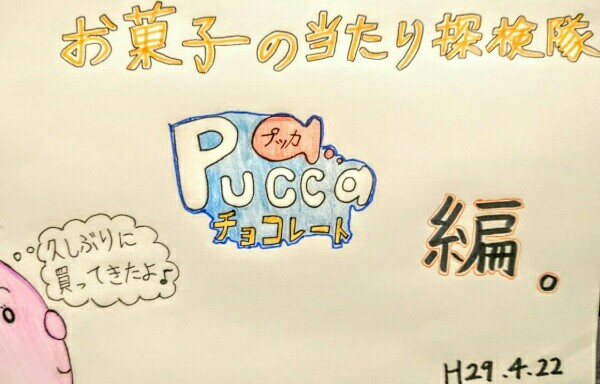 お菓子の当たり探検隊
プッカ
Pucca
チョコレート
編。
久しぶりに
買ってきたよ♪
H29.4.22